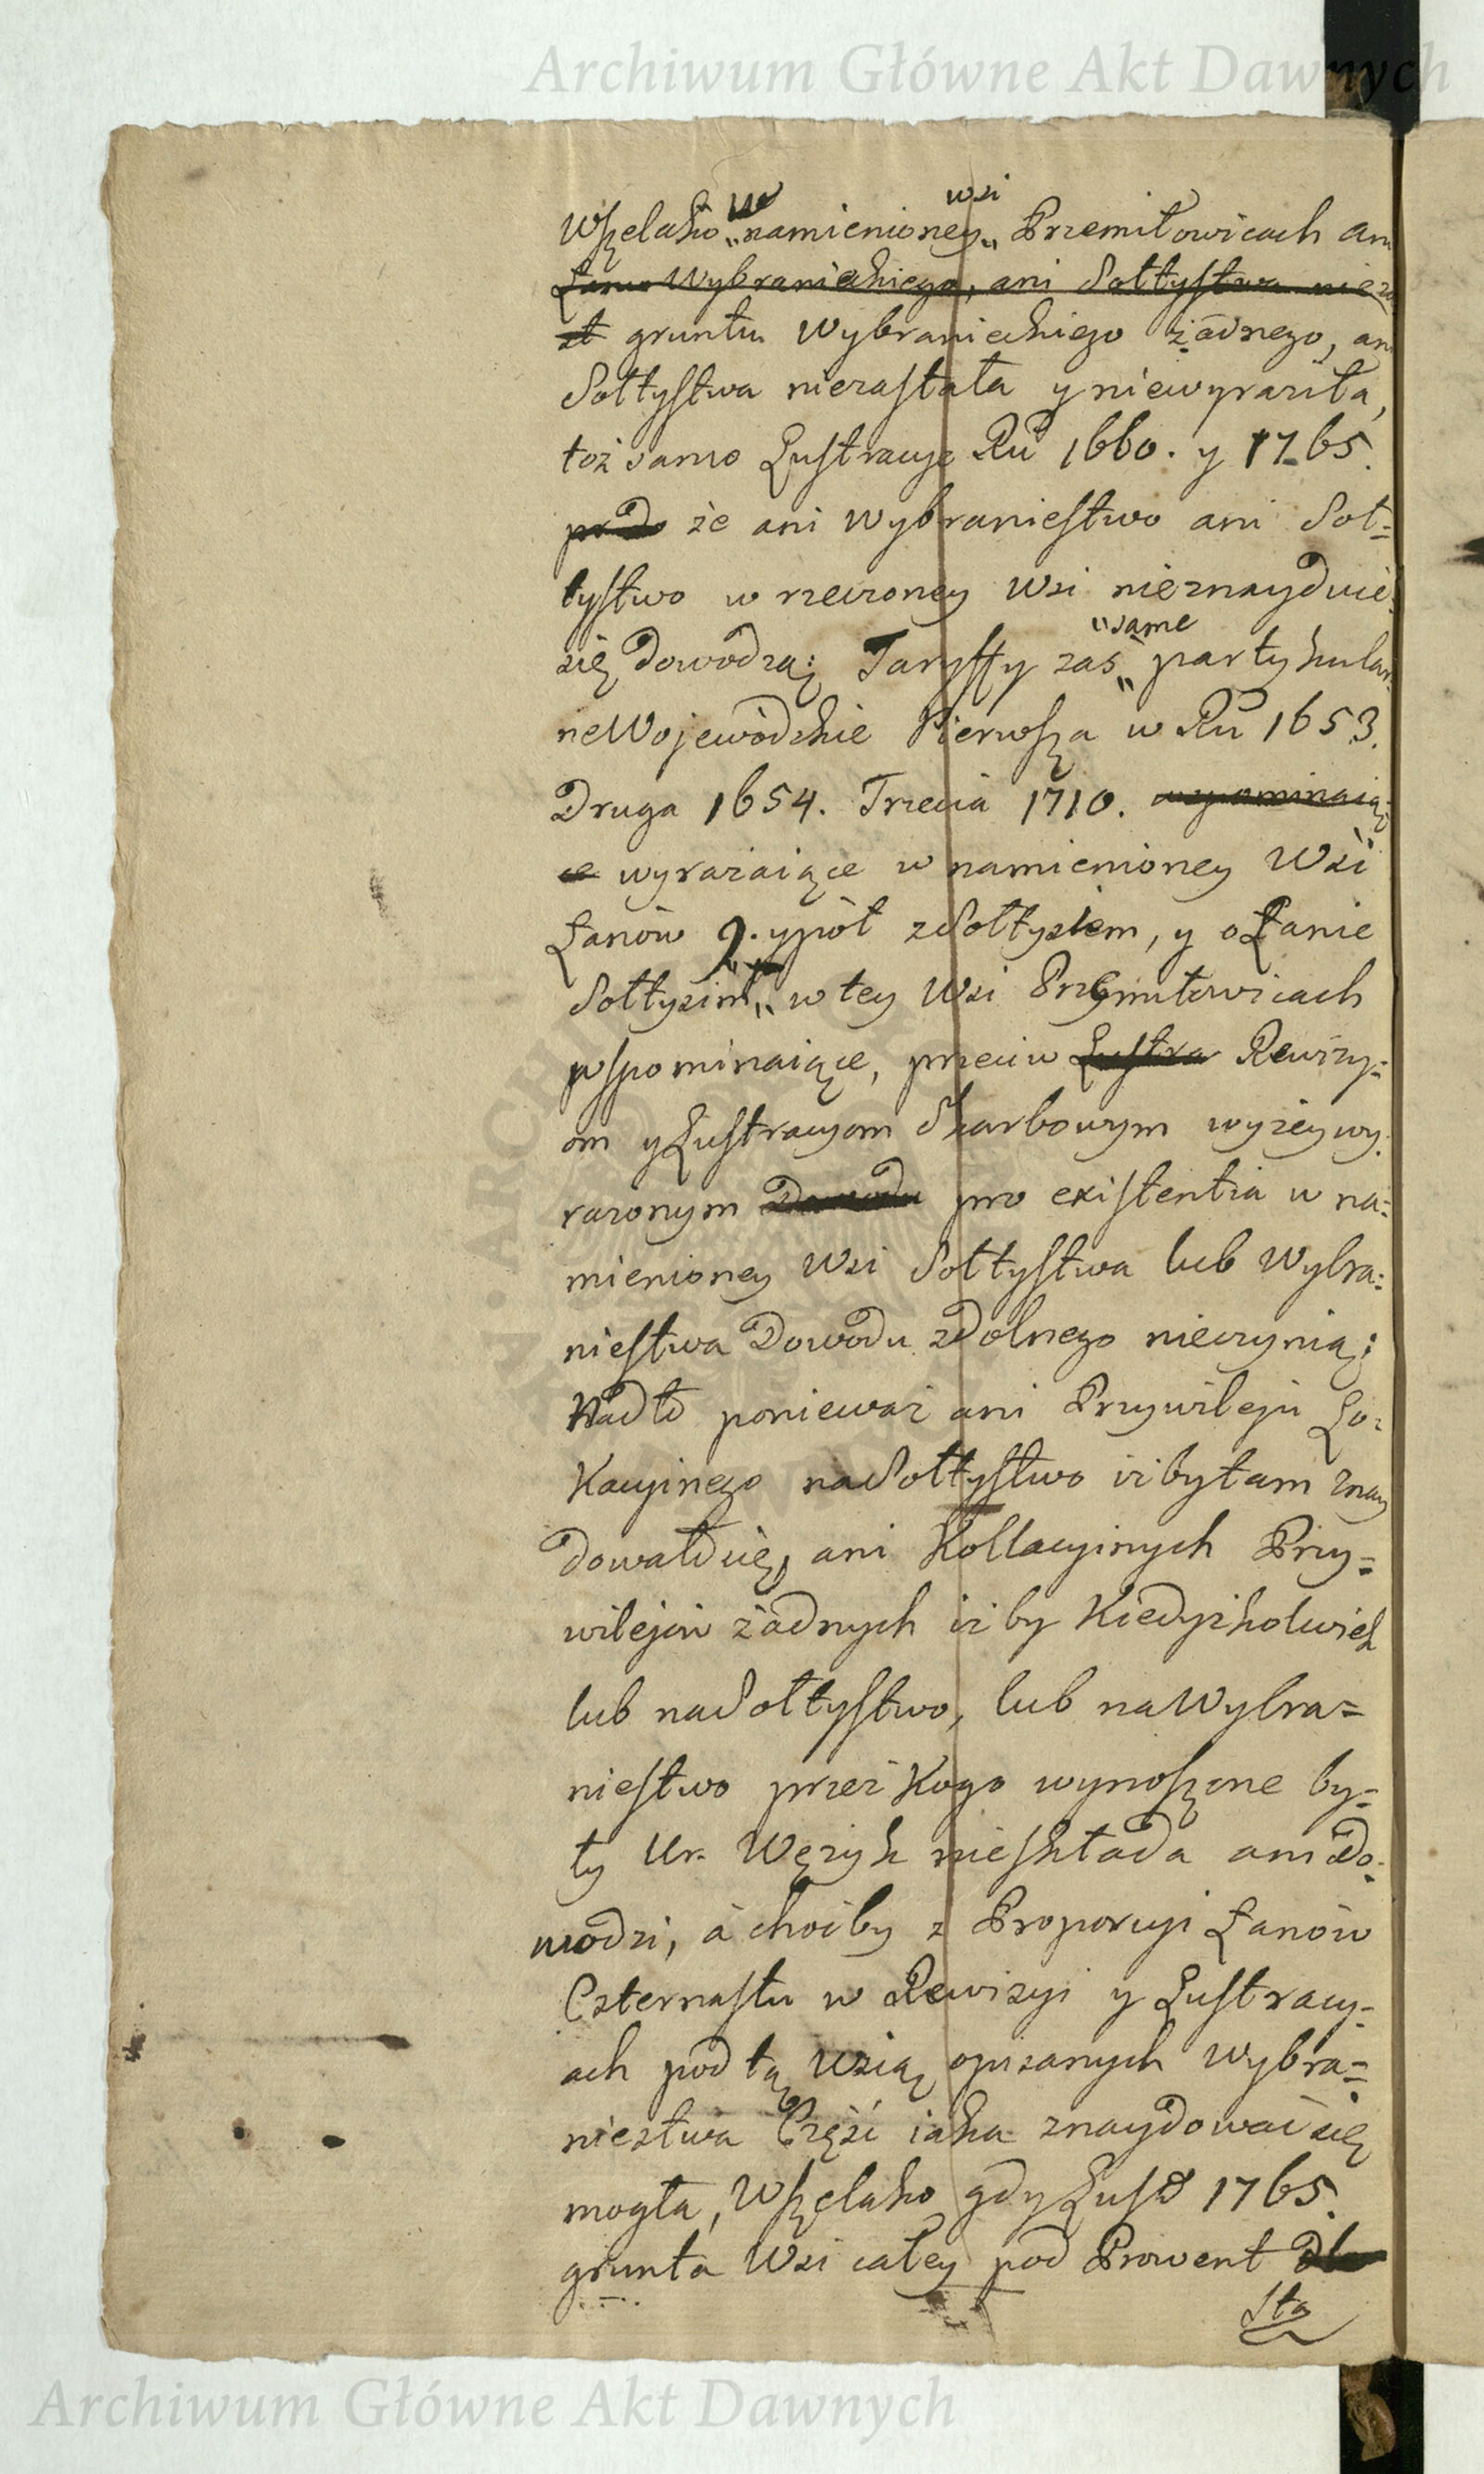 Archiwum Główne Akt Dawnych
wsi
Wszelako w namienioney Przemiłowicach ani
Łanu Wybranieckiego, ani Sołtystwa nieza
st gruntu Wybranieckiego żadnego, ani
Sołtystwa niezastała y niewyraziła,
toż samo Lustracye Ru 1660. y 1765.
że ani Wybraniestwo ani Soł-
tystwo w rzeczoney Wsi nieznayduie
się dowodzą; Taryffy zaś same partykular-
ne Wojewódzkie Pierwsza w Ru 1653.
Druga 1654. Trzecia 1710. wspominaią-
ce wyrażaiące w namienioney Wsi
Łanów 9. y pół z Sołtysiem, y o Łanie
Sołtysim w tey Wsi Przemiłowicach
wspominaiące, przeciw Lustra Rewizy-
om y Lustracyom Skarbowym wyżey wy-
rażonym Dowodu pro existentia w na-
mienioney Wsi Sołtystwa lub Wybra-
niestwa Dowodu zdolnego nieczynią;
Nadto ponieważ ani Przywileju Lo-
kacyinego na Sołtystwo iżby tam znay
dowało się, ani Kollacyinych Przy-
wilejów żadnych iżby kiedyżkolwiek
lub na Sołtystwo, lub na Wybra-
niestwo przez kogo wynoszone by-
ły Ur. Wężyk nieskłada ani do-
wodzi, á choćby z Proporcyi Łanów
Czternastu w Rewizyi y Lustracy-
ach pod tą Wsią opisanych Wybra-
niestwa Część iaka znaydować się
mogła, Wszelako gdy Lust 1765.
grunta Wsi całey pod Prowent
Sta
Archiwum Główne Akt Dawnych